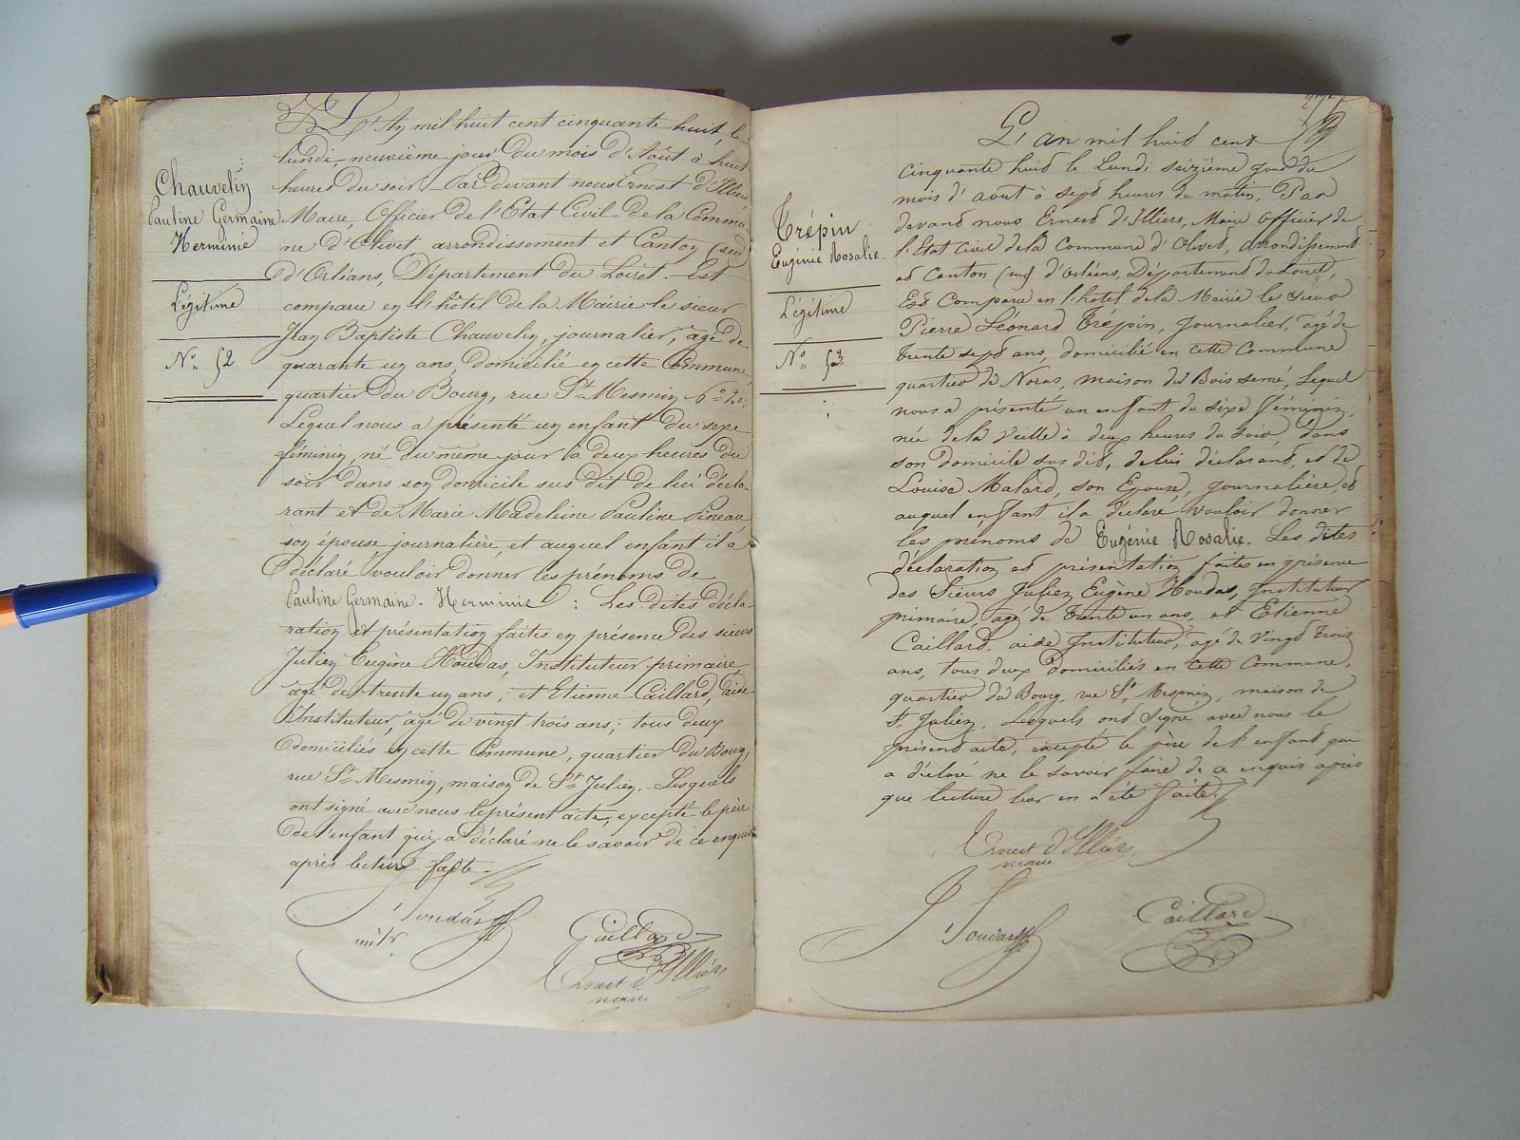 Chauvelin
Pauline Germaine
Herminie
Légitime
No. 52
L'An mil huit cent cinquante huit, le
lundi neuvième jour du mois d'Août à huit
heures du soir Par devant nous Ernest d'Illiers
Maire, Officier de l'Etat Civil de la Commu-
ne d'Olivet arrondissement et Canton (sud)
d'Orléans, Département du Loiret. Est
comparu en l'hôtel de la Mairie le sieur
Jean Baptiste Chauvelin, journalier, âgé de
quarante un ans, domicilié en cette Commune
quartier du Bourg, rue St Mesmin
Lequel nous a présenté un enfant du sexe
féminin, né du même jour à deux heures du
soir dans son domicile sus dit de lui décla-
rant et de Marie Madeleine Pauline Pineau
son épouse journalière, et auquel enfant il a
déclaré vouloir donner les prénoms de
Pauline Germaine Herminie : Les dites décla-
ration et présentation faites en présence des sieurs
Julien Eugène Houdas, Instituteur primaire,
âgé de trente un ans, et Etienne Caillard, aide-
Instituteur, âgé de vingt trois ans; tous deux
domiciliés en cette Commune, quartier du Bourg,
rue St Mesmin, maison de St Julien. Lesquels
ont signé avec nous le présent acte, excepté le père
de l'enfant qui a déclaré ne le savoir de ce enquis
après lecture faite.
Houdas
Caillard
Ernest d'Illiers
maire
Trépin
Eugénie Rosalie
Légitime
No. 53
L'an mil huit cent
cinquante huit le Lundi seizième jour du
mois d'août à sept heures du matin, Par
devant nous Ernest d'Illiers, Maire Officier de
l'Etat Civil de la Commune d'Olivet, arrondissement
et Canton (sud) d'Orléans, Département du Loiret,
Est Comparu en l'hotel de la Mairie le sieur
Pierre Léonard Trépin, Journalier, âgé de
trente sept ans, domicilié en cette Commune
quartier de Noras, maison du Bois semé, Lequel
nous a présenté un enfant du sexe féminin,
née de la veille à deux heures du soir, dans
son domicile sus dit, de lui déclarant, et de
Louise Malard, son Epouse, journalière, et
auquel enfant il a déclaré vouloir donner
les prénoms de Eugénie Rosalie. Les dites
déclaration et présentation faites en présence
des Sieurs Julien Eugène Houdas, Instituteur
primaire, âgé de trente un ans, et Etienne
Caillard, aide Instituteur, agé de vingt trois
ans, tous deux domiciliés en cette Commune,
quartier du Bourg, rue St Mesmin, maison de
St Julien. Lesquels ont signé avec nous le
présent acte, excepté le père de l'enfant qui
a déclaré ne le savoir faire de ce enquis après
que lecture leur en a été faite.
Ernest d'Illiers
maire
Houdas
Caillard